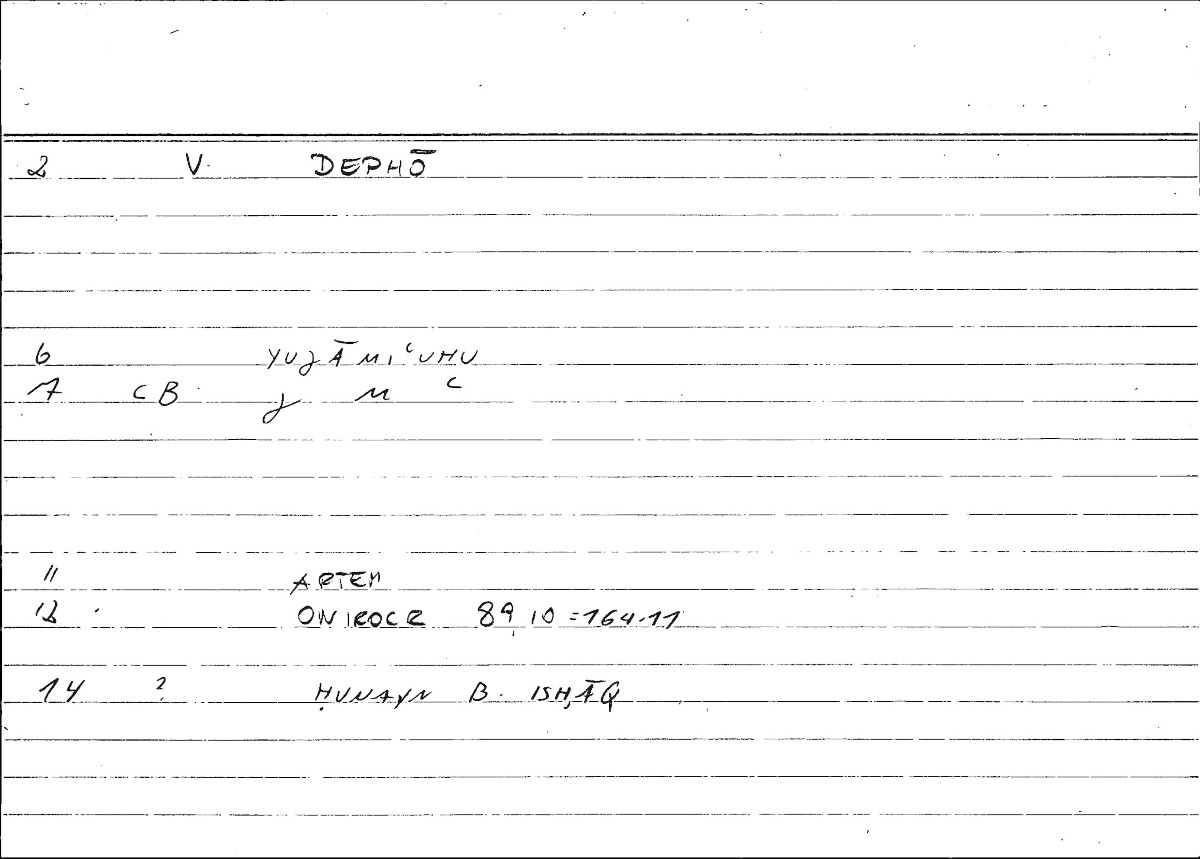 2 V. DEPHŌ
6 YUJĀMIʿUHU
7 CB J M ʿ
11 ARTEM
12 ONIROCR 89,10 = 164.11
14 ? ḤUNAYN B. ISḤĀQ